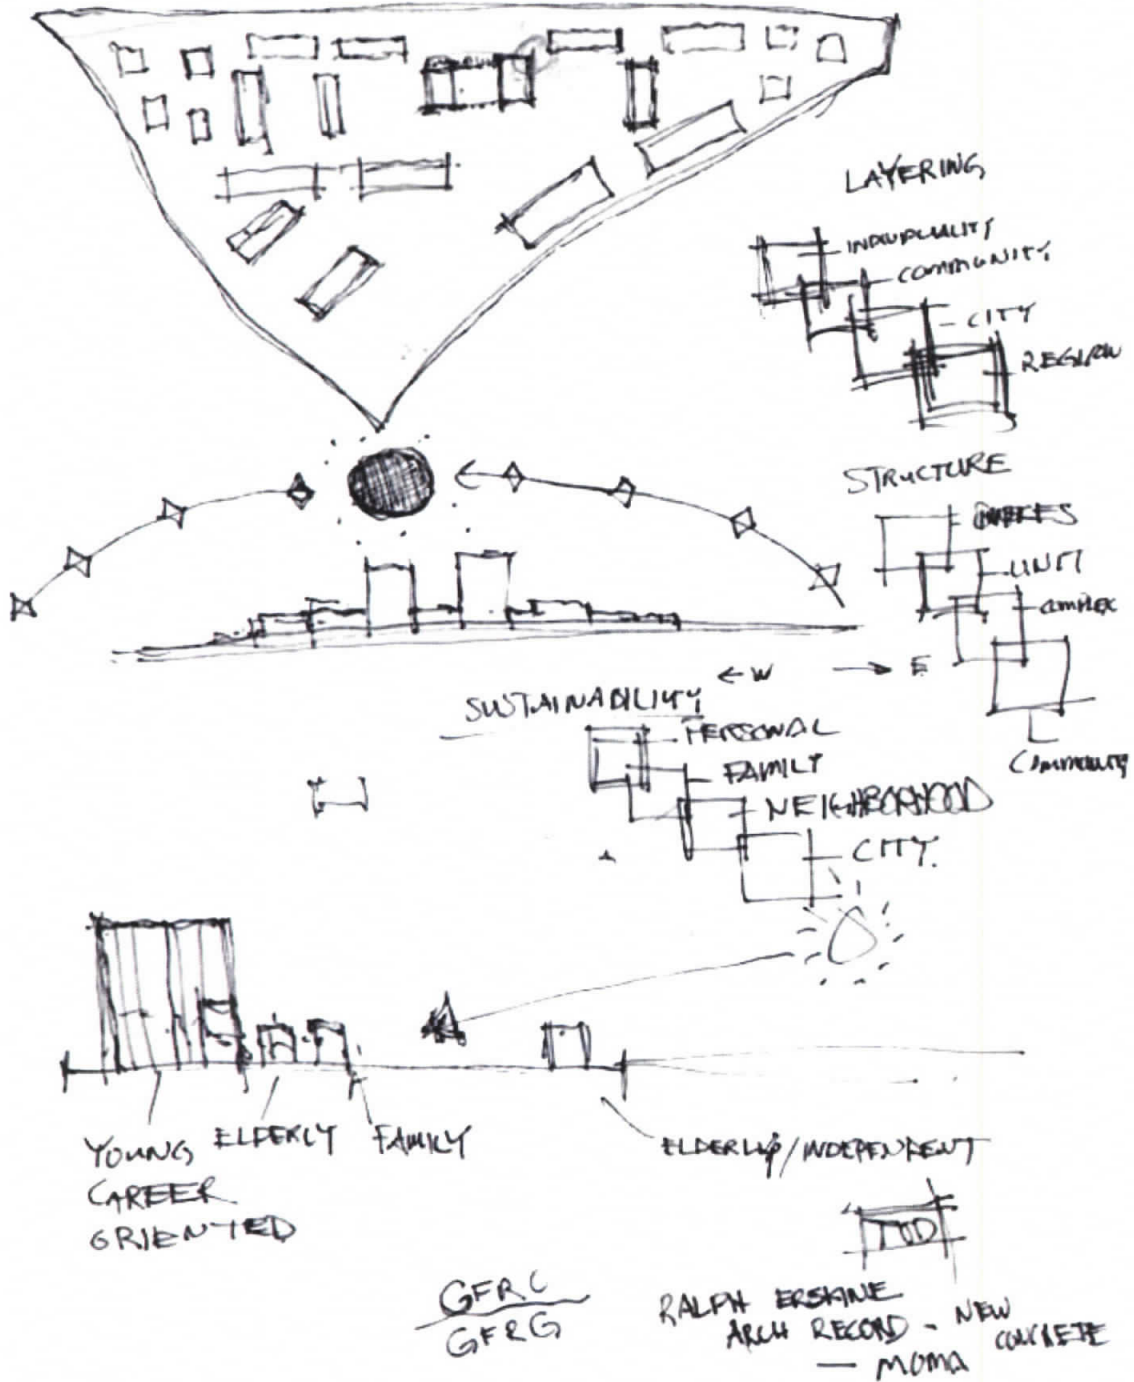 LAYERING
INDIVIDUALITY
COMMUNITY
CITY
REGION
STRUCTURE
UNIT
COMPLEX
COMMUNITY
← W → E
SUSTAINABILITY
PERSONAL
FAMILY
NEIGHBORHOOD
CITY.
YOUNG CAREER ORIENTED
ELDERLY
FAMILY
ELDERLY/INDEPENDENT
TOD
GFRC
GFRG
RALPH ERSKINE
ARCH RECORD - NEW CONCRETE
— MOMA